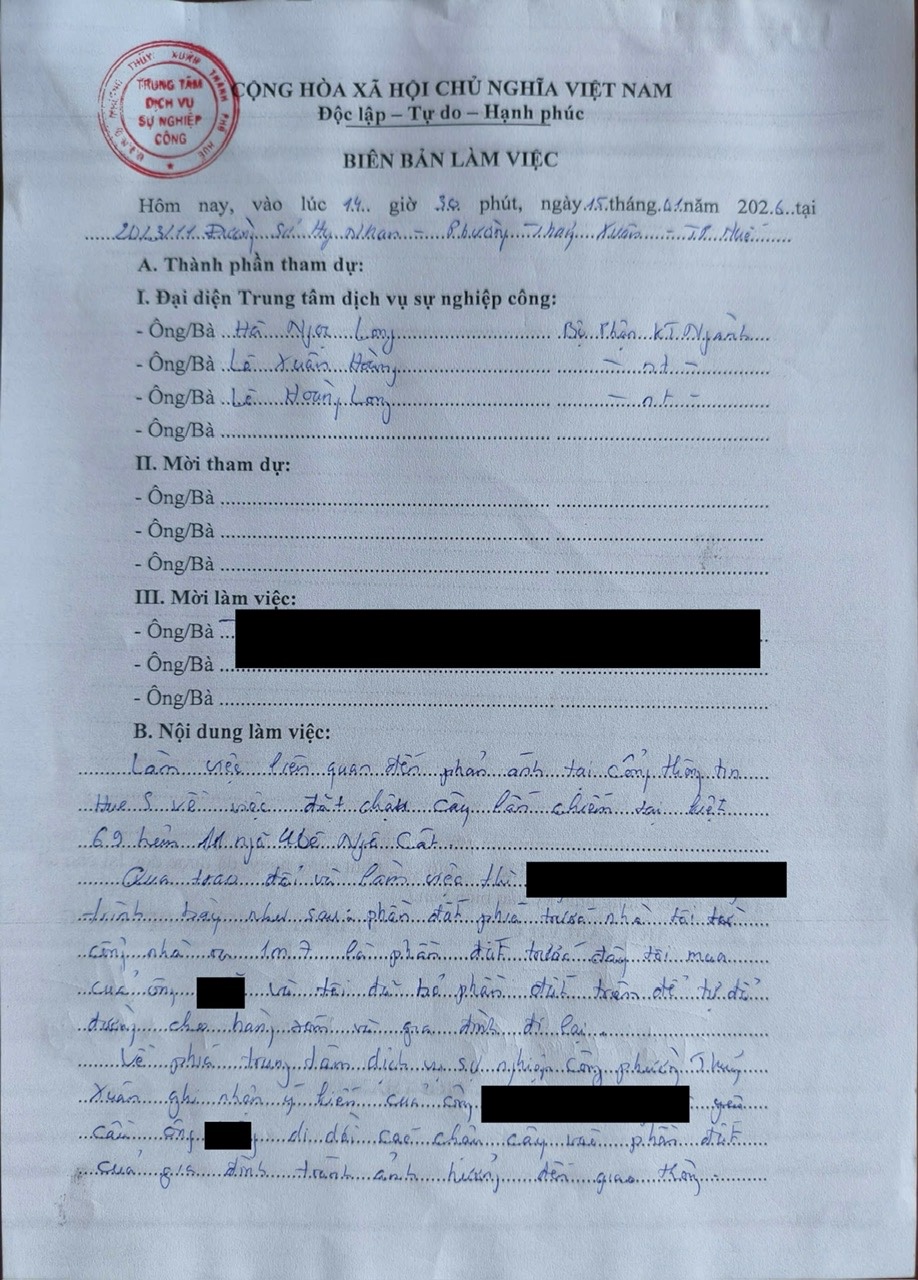 U.B.N.D PHƯỜNG THỦY XUÂN THÀNH PHỐ HUẾ
TRUNG TÂM
DỊCH VỤ
SỰ NGHIỆP
CÔNG
CỘNG HÒA XÃ HỘI CHỦ NGHĨA VIỆT NAM
Độc lập – Tự do – Hạnh phúc
BIÊN BẢN LÀM VIỆC
Hôm nay, vào lúc 14.. giờ 30 phút, ngày 15 tháng 01 năm 2026..tại
Đường Sư Hy Nhan – Phường Thuỷ Xuân – TP Huế
A. Thành phần tham dự:
I. Đại diện Trung tâm dịch vụ sự nghiệp công:
- Ông/Bà Hà Ngọc Long Bộ Phận KT.Ngành
- Ông/Bà Lê Xuân Hoàng – nt –
- Ông/Bà Lê Hoàng Long – nt –
- Ông/Bà
II. Mời tham dự:
- Ông/Bà
- Ông/Bà
- Ông/Bà
III. Mời làm việc:
- Ông/Bà
- Ông/Bà
- Ông/Bà
B. Nội dung làm việc:
Làm việc liên quan đến phản ánh tại cổng thông tin
Hue S về việc đặt chậu cây lấn chiếm tại kiệt
69 hẻm 11 ngõ Ngô Cát
Qua trao đổi và làm việc thì
trình bày như sau: phần đất phía trước nhà tôi từ
cổng nhà ra 1m7 là phần đất trước đây tôi mua
của ông và tôi đã bỏ phần đất trên để tự đổ
đường cho hàng xóm và gia đình đi lại.
Về phía trung tâm dịch vụ sự nghiệp công phường Thuỷ
Xuân ghi nhận ý kiến của ông yêu
cầu ông di dời các chậu cây vào phần đất
của gia đình tránh ảnh hưởng đến giao thông.